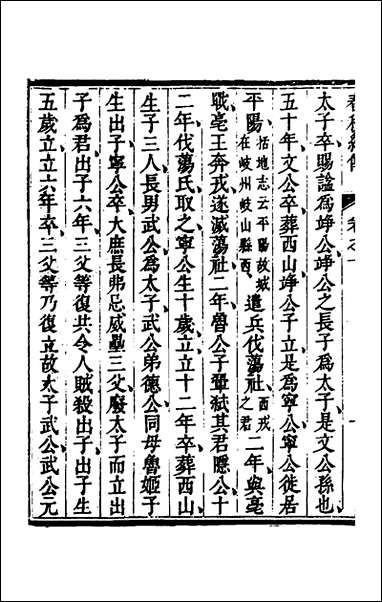 春秋紀傳 卷之一
太子卒賜諡爲竫公竫公之長子爲太子是文公孫也
五十年文公卒葬西山竫公子立是爲寧公寧公徙居
平陽括地志云平陽故城在岐州岐山縣西遣兵伐蕩社西戎之君二年與亳
戰亳王奔戎遂滅蕩社二年魯公子翬弑其君隱公十
二年伐蕩氏取之寧公生十歲立立十二年卒葬西山
生子三人長男武公爲太子武公弟德公同母魯姬子
生出子寧公卒大庶長弗忌威壘三父廢太子而立出
子爲君出子六年三父等復共令人賊殺出子出子生
五歲立立六年卒三父等乃復立故太子武公武公元